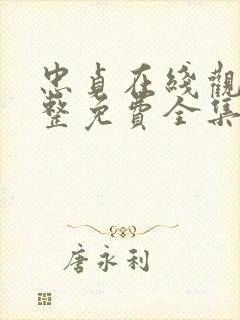 忠貞在綫觀
整免費全集
唐永利